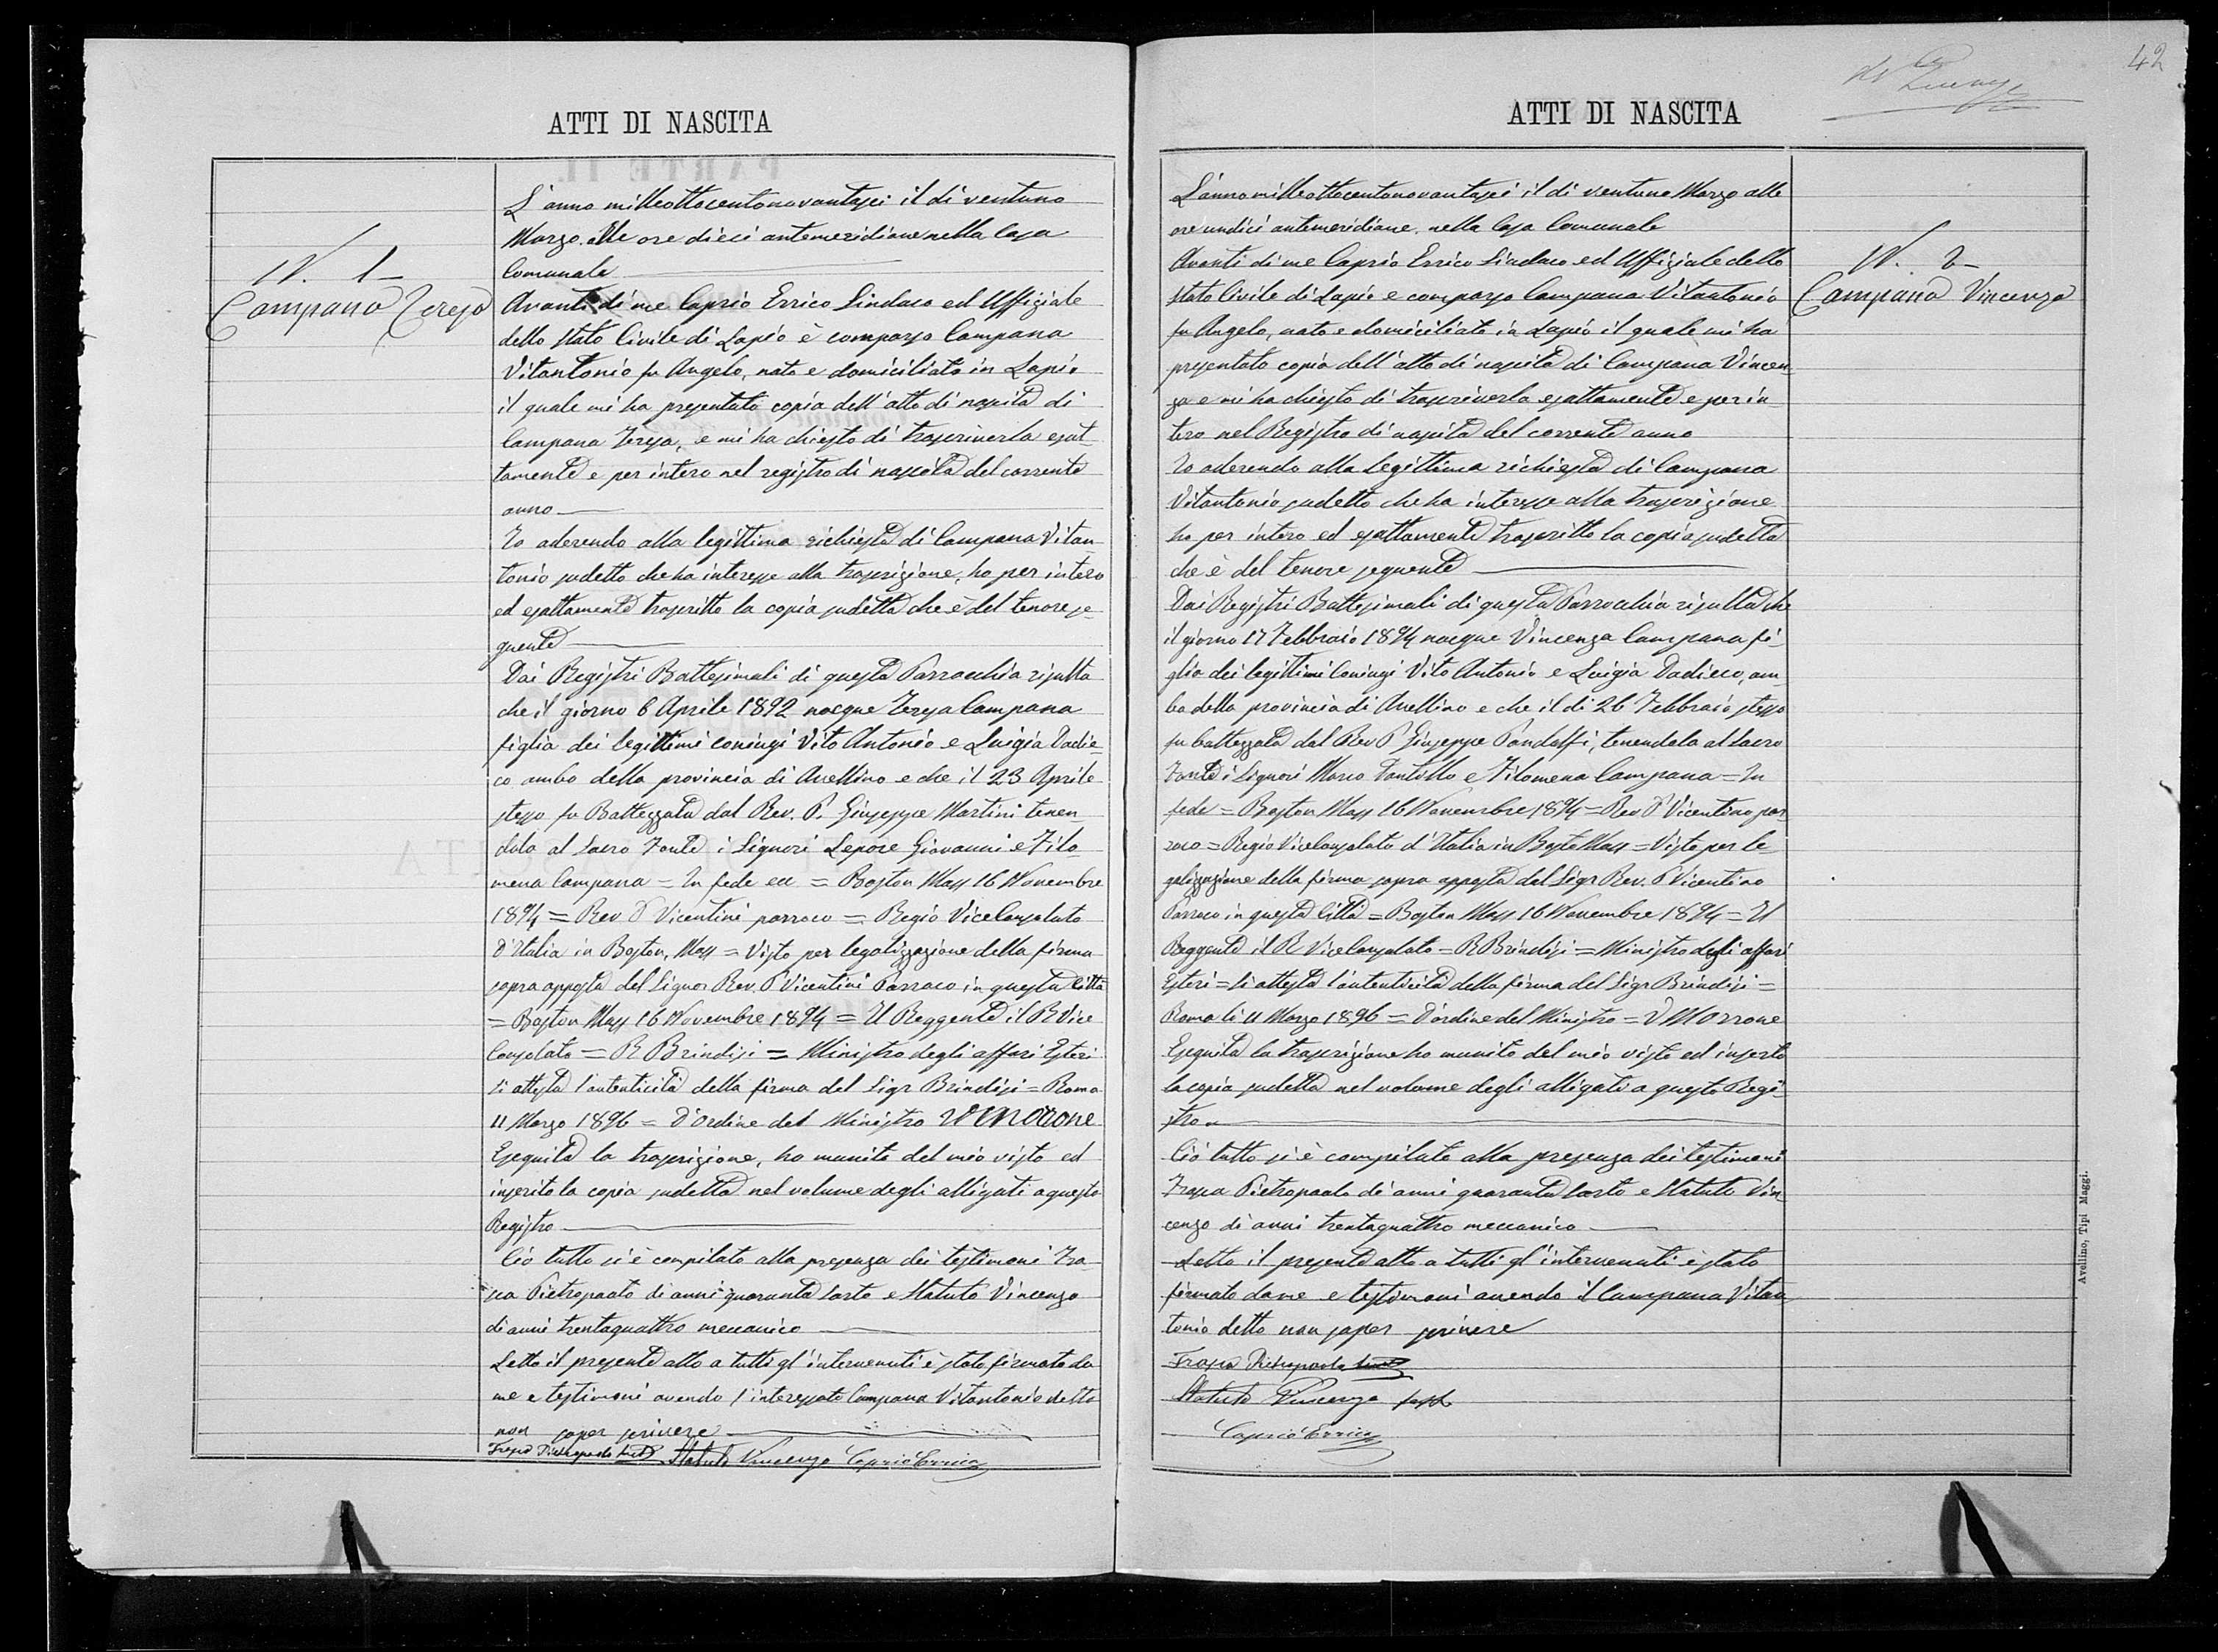 42
ATTI DI NASCITA
N. 1
Campana Teresa
L'anno milleottocentonovantasei il di ventuno
Marzo alle ore dieci antemeridiane nella Casa
Comunale
Avanti di me Caprio Errico Sindaco ed Uffiziale
dello Stato Civile di Lapio è comparso Campana
Vitantonio fu Angelo, nato e domiciliato in Lapio
il quale mi ha presentato copia dell'atto di nascita di
Campana Teresa, e mi ha chiesto di trascriverla esat-
tamente e per intero nel registro di nascita del corrente
anno
Io aderendo alla legittima richiesta di Campana Vitan
tonio sudetto che ha interesse alla trascrizione, ho per intero
ed esattamente trascritto la copia sudetta che è del tenore se-
guente
Dai Registri Battesimali di questa Parrocchia risulta
che il giorno 6 Aprile 1892 nacque Teresa Campana
figlia dei legittimi coniugi Vito Antonio e Luigia Dadie-
co ambo della provincia di Avellino e che il 23 Aprile
stesso fu Battezzata dal Rev. P. Giuseppe Martini tenen-
dola al Sacro Fonte i Signori Lepore Giovanni e Filo-
mena Campana = In fede = Boston Mass 16 Novembre
1894 = Rev P Vicentini parroco = Regio ViceConsolato
D'Italia in Boston, Mass = Visto per legalizzazione della firma
sopra apposta del Signor Rev. P Vicentini Parroco in questa Città
= Boston Mass 16 Novembre 1894 = Il Reggente il R Vice
Consolato = R Brindisi = Ministro degli affari Esteri
Si attesta l'autenticità della firma del Sigr Brindisi = Roma
11 Marzo 1896 = D'Ordine del Ministro
Eseguita la trascrizione, ho munito del mio visto ed
inserito la copia sudetta nel volume degli alligati a questo
Registro
Ciò tutto si è compilato alla presenza dei testimoni Fra-
sca Pietropaolo di anni quaranta sarto e Statuto Vincenzo
di anni trentaquattro meccanico
Letto il presente atto a tutti gl'intervenuti è stato firmato da
me e testimoni avendo l'interessato Campana Vitantonio detto
non saper scrivere
Frasca Pietropaolo Statuto Vincenzo Caprio Errico
ATTI DI NASCITA
N. 2
Campana Vincenza
L'anno milleottocentonovantasei il di ventuno Marzo alle
ore undici antemeridiane, nella Casa Comunale
Avanti di me Caprio Errico Sindaco ed Uffiziale dello
Stato Civile di Lapio è comparso Campana Vitantonio
fu Angelo, nato e domiciliato in Lapio il quale mi ha
presentato copia dell'atto di nascita di Campana Vincen-
za e mi ha chiesto di trascriverla esattamente e per in-
tero nel Registro di nascita del corrente anno
Io aderendo alla legittima richiesta di Campana
Vitantonio sudetto che ha interesse alla trascrizione
ho per intero ed esattamente trascritto la copia sudetta
che è del tenore seguente
Dai Registri Battesimali di questa Parrocchia risulta che
il giorno 17 Febbraio 1894 nacque Vincenza Campana fi-
glia dei legittimi Coniugi Vito Antonio e Luigia Dadieco, am-
bo della provincia di Avellino e che il di 26 Febbraio stesso
fu battezzata dal Rev P Giuseppe Pandolfi, tenendola al Sacro
Fonte i Signori Marco e Filomena Campana = In
fede = Boston Mass 16 Novembre 1894 = Rev P Vicentino par-
roco = Regio ViceConsolato d'Italia in Bosto Mass = Visto per le-
galizzazione della firma sopra apposta del Sigr Rev. P Vicentino
Parroco in questa Città = Boston Mass 16 Novembre 1894 = Il
Reggente il R ViceConsolato = R Brindisi = Ministro degli affari
Esteri = Si attesta l'autenticità della firma del Sigr Brindisi =
Roma li 11 Marzo 1896 = D'ordine del Ministro = V Morrone
Eseguita la trascrizione ho munito del mio visto ed inserto
la copia sudetta nel volume degli alligati a questo Regi-
stro
Ciò tutto si è compilato alla presenza dei testimoni
Frasca Pietropaolo di anni quaranta sarto e Statuto Vin-
cenzo di anni trentaquattro meccanico
Letto il presente atto a tutti gl'intervenuti è stato
firmato da me e testimoni avendo il Campana Vitan-
tonio detto non saper scrivere
Frasca Pietropaolo
Statuto Vincenzo
Caprio Errico
Avellino, Tipi Maggi.